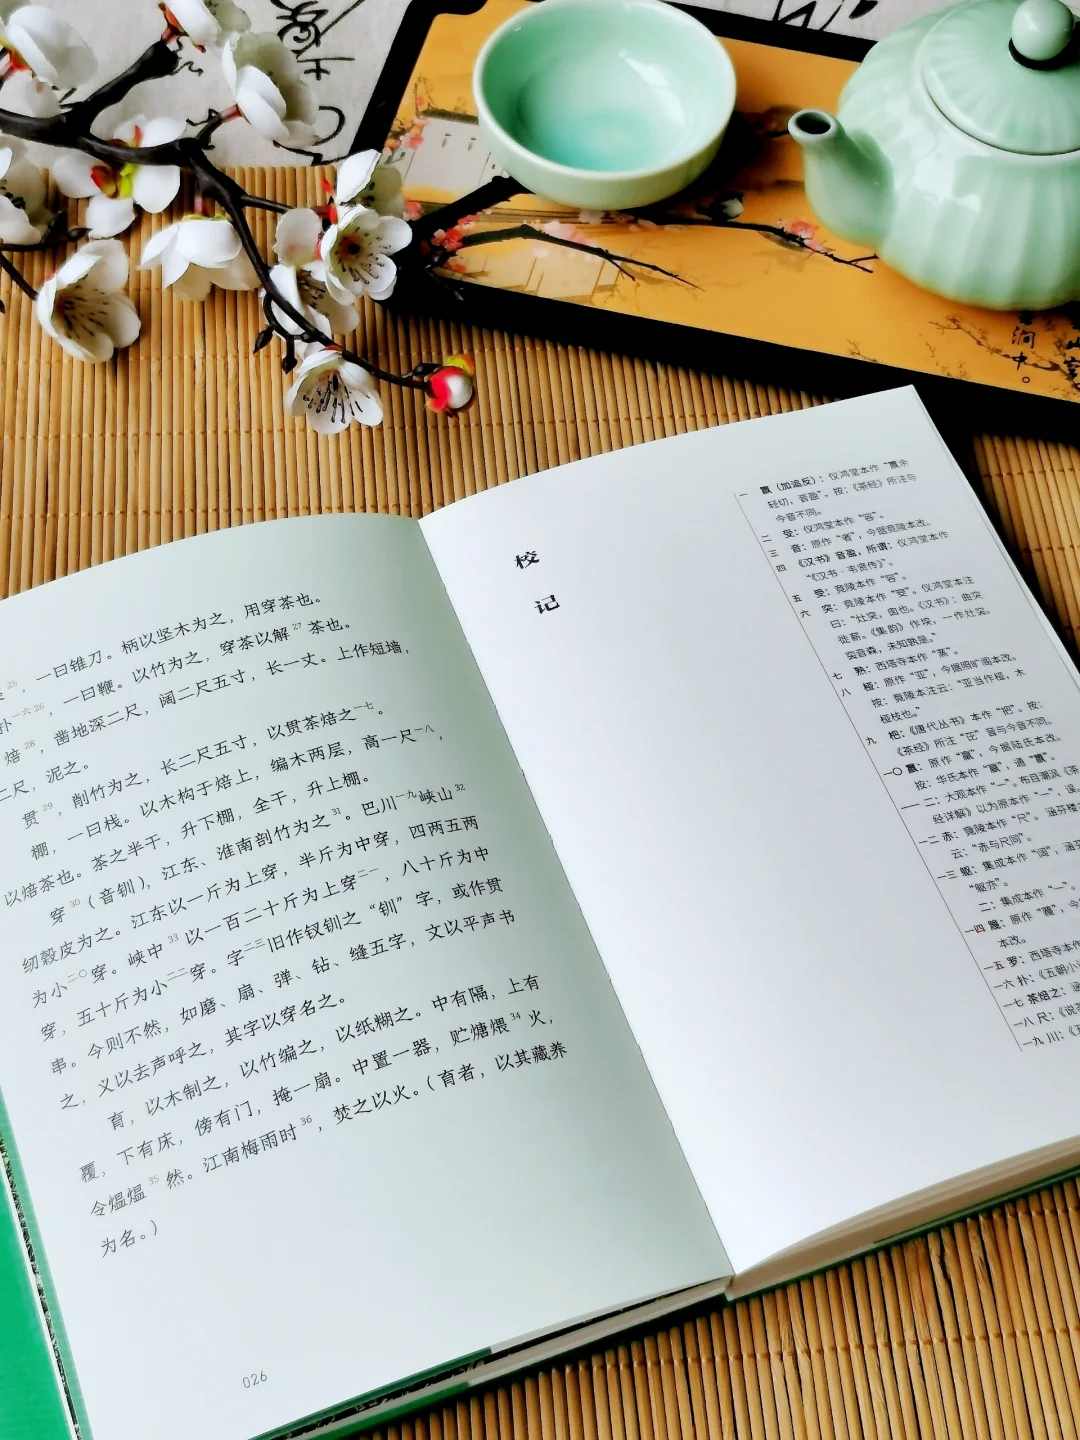 ，一曰锥刀。柄以坚木为之，用穿茶也。
扑一六26，一曰鞭。以竹为之，穿茶以解27茶也。
焙28，凿地深二尺，阔二尺五寸，长一丈。上作短墙，
二尺，泥之。
贯29，削竹为之，长二尺五寸，以贯茶焙之一七。
棚，一曰栈。以木构于焙上，编木两层，高一尺一八，
以焙茶也。茶之半干，升下棚，全干，升上棚。
穿30（音钏），江东、淮南剖竹为之31。巴川一九峡山32
纫榖皮为之。江东以一斤为上穿，半斤为中穿，四两五两
为小二〇穿。峡中33以一百二十斤为上穿二一，八十斤为中
穿，五十斤为小二二穿。字二三旧作钗钏之“钏”字，或作贯
串。今则不然，如磨、扇、弹、钻、缝五字，文以平声书
之，义以去声呼之，其字以穿名之。
育，以木制之，以竹编之，以纸糊之。中有隔，上有
覆，下有床，傍有门，掩一扇。中置一器，贮煻煨34火，
令煴煴35然。江南梅雨时36，焚之以火。（育者，以其藏养
为名。）
026
校记
一 籝（加追反）：仪鸿堂本作“籝余
轻切，音盈”。按：《茶经》所注与
今音不同。
二 受：仪鸿堂本作“容”。
三 音：原作“者”，今据竟陵本改。
四 《汉书》音盈，所谓：仪鸿堂本作
“《汉书·韦贤传》”。
五 受：竟陵本作“容”。
六 突：竟陵本作“窔”。仪鸿堂本注
曰：“灶突，囱也。《汉书》：曲突
徙薪。《集韵》作堗，一作灶突。
突音森，未知孰是。”
七 熟：西塔寺本作“蒸”。
八 桠：原作“亚”，今据照旷阁本改。
按：竟陵本注云：“亚当作桠，木
桠枝也。”
九 杷：《唐代丛书》本作“把”。按：
《茶经》所注“茈”音与今音不同。
一〇 籝：原作“籯”，今据陆氏本改。
按：华氏本作“籯”，通“籝”。
一一 二：大观本作“一”。布目潮沨《茶
经详解》以为原本作“一”，误。
一二 赤：竟陵本作“尺”。涵芬楼
云：“赤与尺同”。
一三 躯：集成本作“阔”，涵芬
“躯亦”。
二：集成本作“一”。
一四 籭：原作“籭”，今
本改。
一五 罗：西塔寺本作
一六 扑：《五朝小
一七 茶焙之：涵
一八 尺：《说
一九 川：《五
涧中。